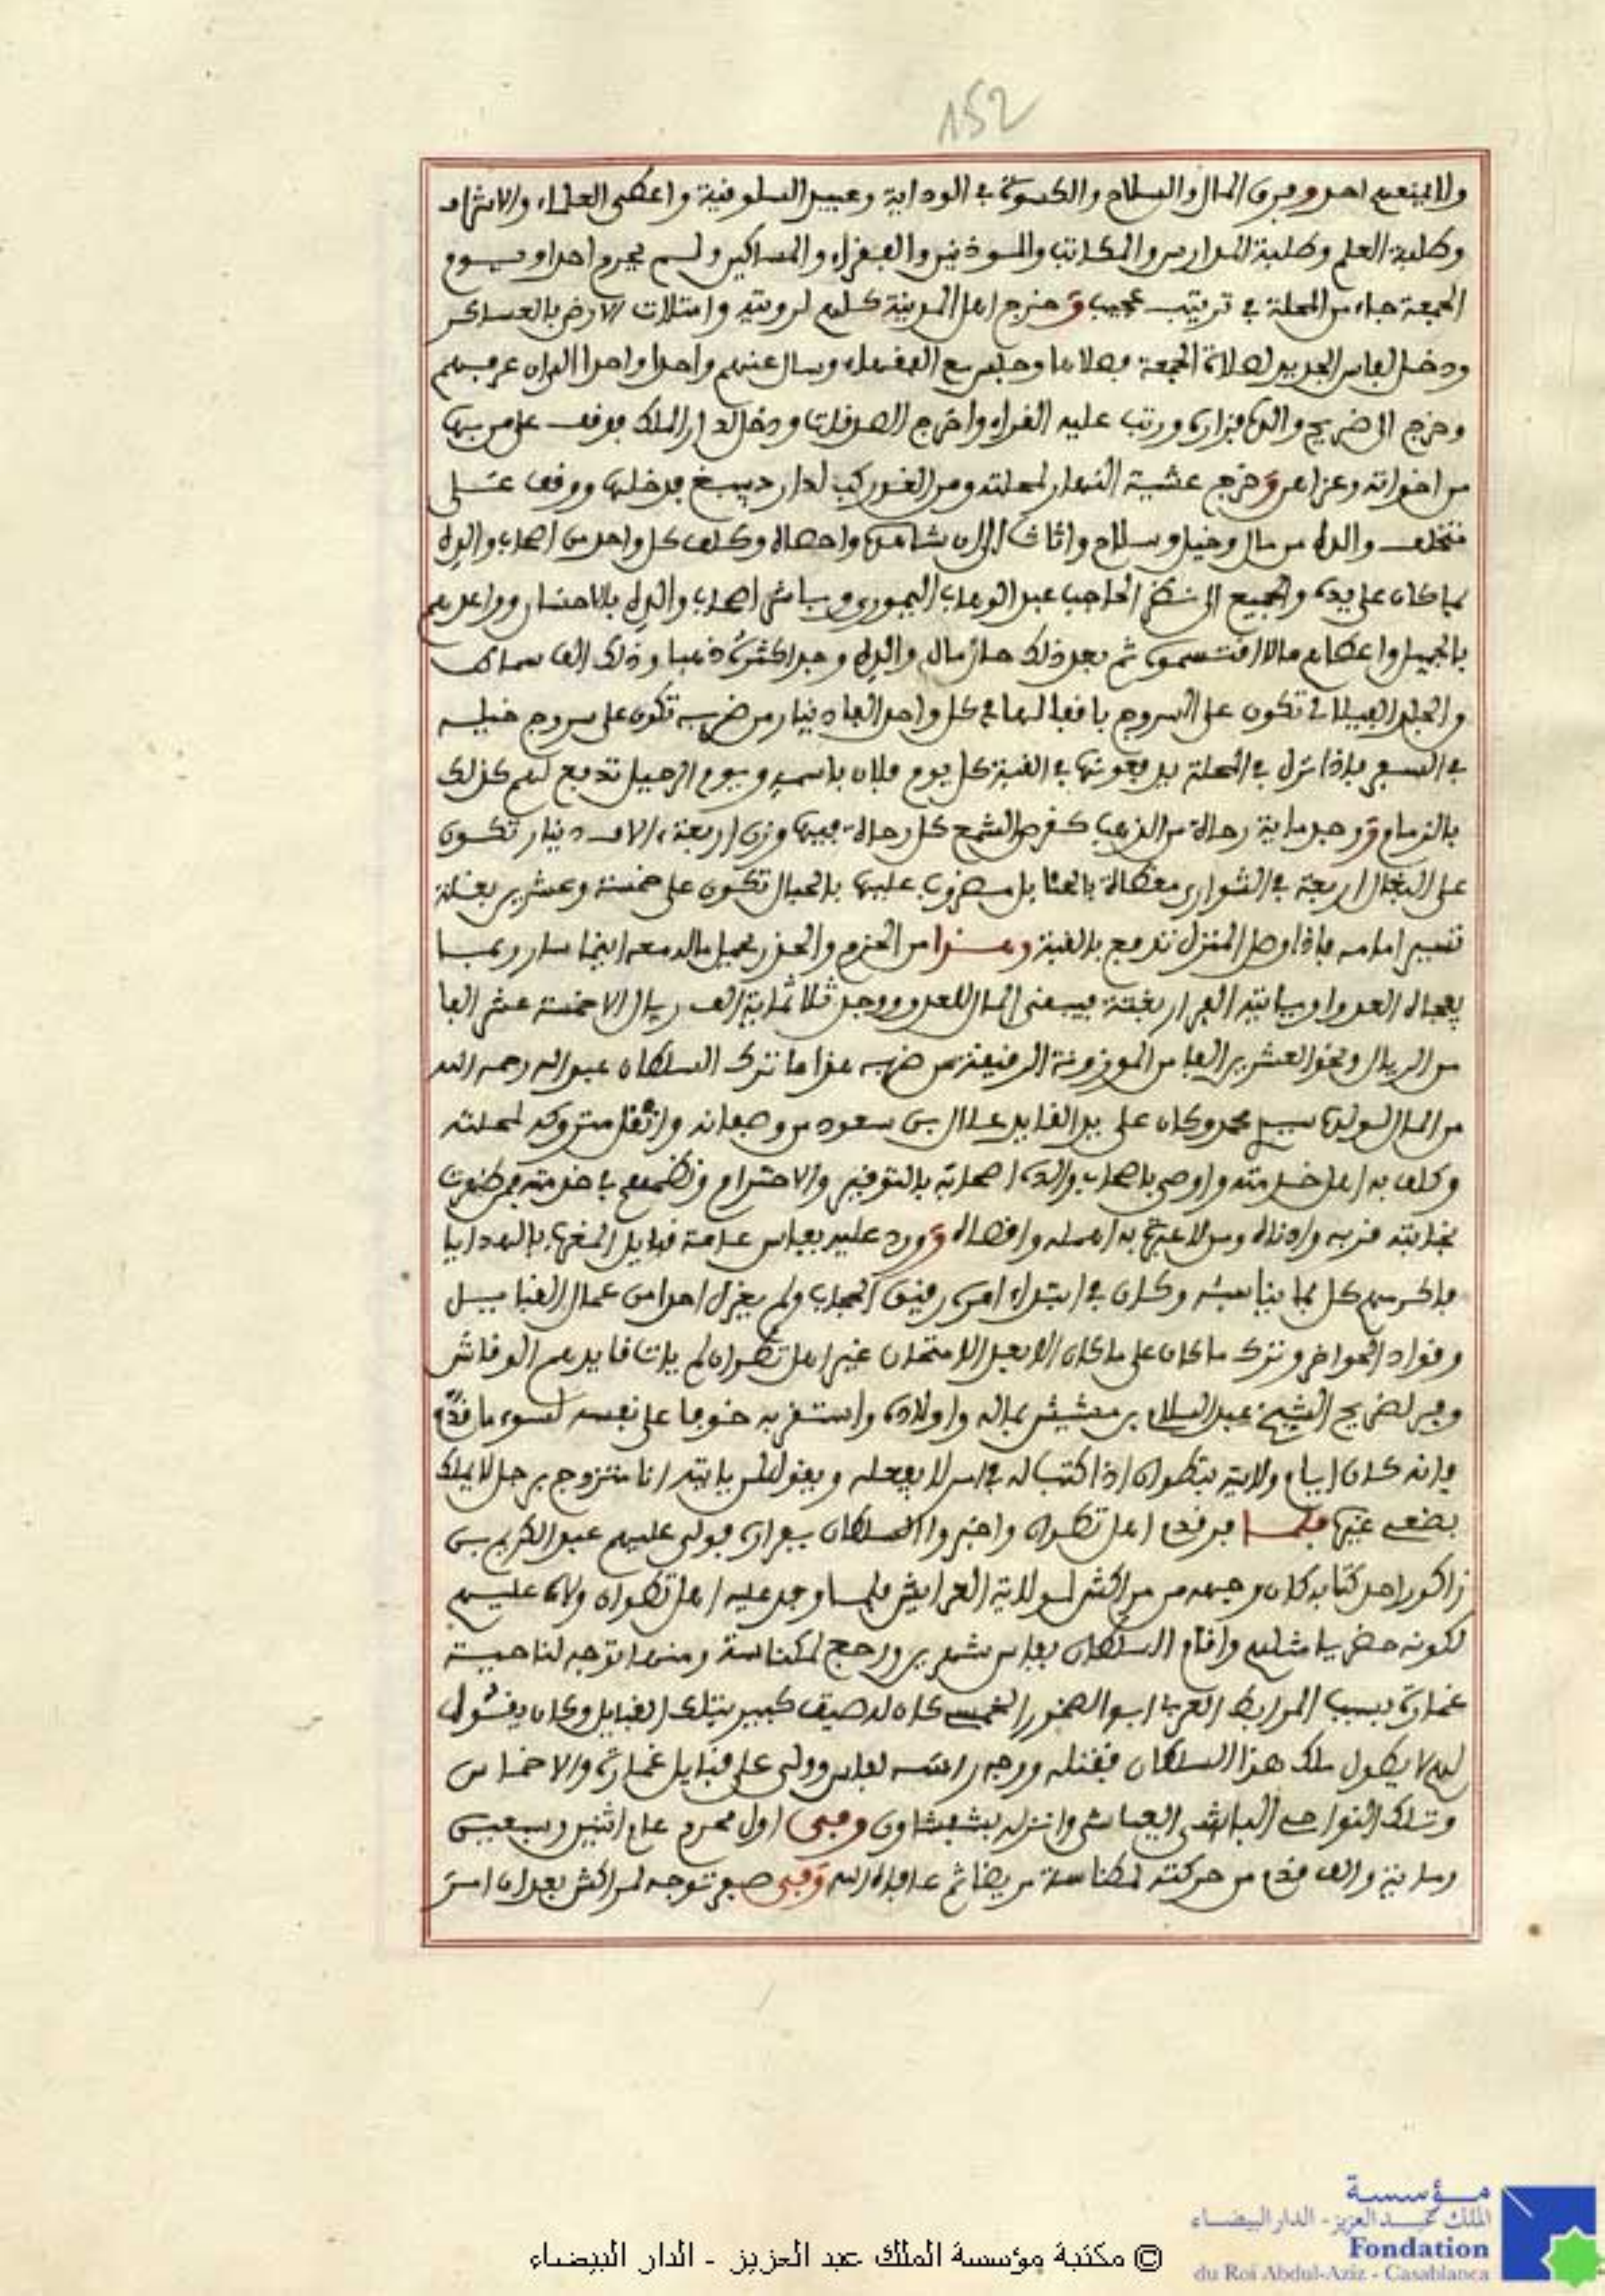 152
ولا يمنعهم احد وفرق المال والسلاح والكسوة في الوداية وعبيد السلوقية واعطى العلماء والاشراف
وطلبة العلم وطلبة المدارس والمكاتب والموذنين والفقراء والمساكين ولم يحرم احدا ويوم
الجمعة جاء من المحلة في ترتيب عجيب وخرج اهل المدينة كلهم لرويته وامتلات الارض بالعساكر
ودخل لفاس الجديد لصلاة الجمعة فصلاها وجلس مع الفقهاء وسال عنهم واحدا واحدا الى ان عرفهم
وخرج الى ضريح والده فزاره ورتب عليه القراء واخرج الصدقات ودخل لدار الملك فوقف على من بها
من اخواته وعزاهم وخرج عشية النهار لمحلته ومن الغد ركب لدار دبيبغ فدخلها ووقف على
متخلف والده من مال وخيل وسلاح واثاث الى ان شاهدها واحصاه وكلف كل واحد من اصحاب والده
بما كان على يده والجميع الى نظر الحاجب عبد الوهاب اليموري وباشر اصحاب والده بالاحسان وواعدهم
بالجميل واعطاهم مالا اقتسموه ثم بعد ذلك حاز مال والده وجد اكثره ذهبا وذلك الف سماط
والجلد الفيلالي تكون على السروج باقفالها في كل واحد الفا دينار من ضربه تكون على سروج خيله
في السفر فاذا نزل في المحلة يدفعونها في القبة كل يوم فلان باسمه ويوم الرحيل تدفع لهم كذلك
بالزمام ووجد ماية رحالة من الذهب كقرص الشمع كل رحالة فيها وزن اربعة ءالاف دينار تكون
على البغال اربعة في الشواري مغطاة بالحنابل مضروب عليها بالحبال تكون على خمسة وعشرين بغلة
تسير امامه فاذا وصل المنزل تدفع بالقبة وهذا من الحزم والحذر يحمل ماله معه اينما سار ربما
يفجاه العدو او ياتيه الفرار بغتة فيبقى المال للعدو ووجد ثلاثماية الف ريال الا خمسة عشر الفا
من الريال ونحو العشرين الفا من الموزونة الرقيقة من ضربه هذا ما ترك السلطان عبد الله رحمه الله
من المال لولده سيدي محمد وكان على يد القايد علال بن سعود من وصفانه واثقل متروكه لمحلته
وكلف به اهل خدمته واوصى باصحاب والده اصحابه بالتوقير والاحترام ونظمهم في خدمته فمن ظهرت
نجابته قربه وادناه ومن لا عبرة به اهمله واقصاه وورد عليه بفاس عامة قبايل المغرب بالهدايا
فاكرمهم كل بما يناسبه وكان في ابتداء امره رفيق الحجاب ولم يعزل احدا من عمال القبايل
وقواد الحواضر وترك ما كان على ما كان الا بعد الامتحان غير اهل تطوان لم يات قايدهم الوقاش
وفر لضريح الشيخ عبد السلام بن مشيش بماله واولاده واستقر به خوفا على نفسه لسوء ما قدم
فانه كان ايام ولايته بتطوان اذا كتب له في امر لا يفعله ويقول انا متزوج برجل لا يملك
بضعي غيره فلما قدم اهل تطوان واخبروا السلطان بفراره فولى عليهم عبد الكريم بن
زاكور احد كتابه كان وجهه من مراكش لولاية العرايش فلما وجد عليه اهل تطوان ولاه عليهم
لكونه حضريا مثلهم واقام السلطان بفاس شهرين ورجع لمكناسة ومنها توجه لناحية
غمارة بسبب المرابط العربي ابو الصخور الخمسي كان له صيت كبير بتلك القبايل وكان يقول
لهم لا يطول ملك هذا السلطان فقتله ووجه راسه لفاس وولى على قبايل غمارة والاخماس
وتلك النواحي الباشى العياشي وانزله بشفشاون وفي اول محرم عام اثنين وسبعين
وماية والف قدم من حركته لمكناسة مريضا ثم عافاه الله وفي صفر توجه لمراكش بعد ان امر
© مكتبة مؤسسة الملك عبد العزيز - الدار البيضاء
مؤسسة
الملك عبد العزيز - الدار البيضاء
Fondation
du Roi Abdul-Aziz - Casablanca